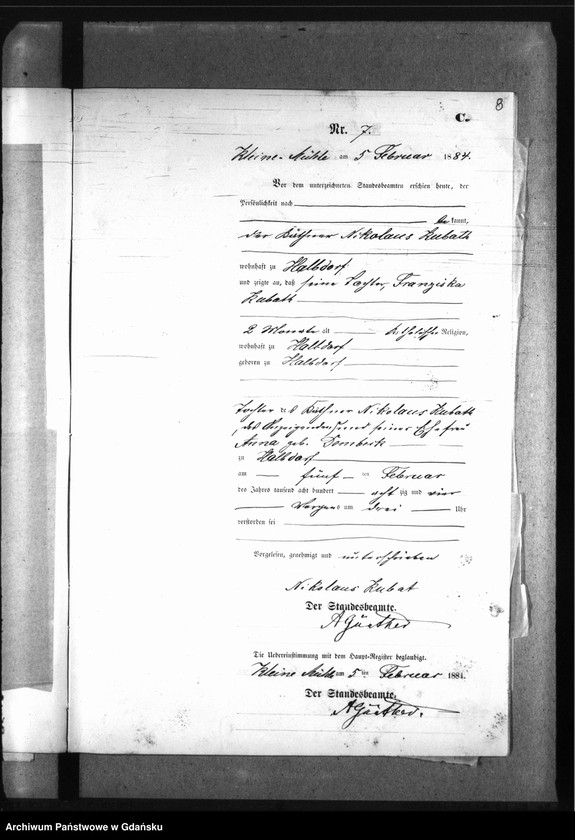 8
C.
Nr. 7.
Kleine-Mühle am 5 Februar 1884.
Vor dem unterzeichneten Standesbeamten erschien heute, der
Persönlichkeit nach
be kannt,
der Büdner Nikolaus Kubath
wohnhaft zu Halbdorf
und zeigte an, daß seine Tochter, Franziska
Kubath
2 Monate alt katholischer Religion,
wohnhaft zu Halbdorf
geboren zu Halbdorf
Tochter des Nikolaus Kubath
, des Anzeigenden, und seiner Ehefrau
Anna geb. Dombeck
zu Halbdorf
am fünf ten Februar
des Jahres tausend acht hundert acht zig und vier
Morgens um drei Uhr
verstorben sei
Vorgelesen, genehmigt und unterschrieben
Nikolaus Kubat
Der Standesbeamte.
AGünther
Die Uebereinstimmung mit dem Haupt-Register beglaubigt.
Kleine Mühle am 5 ten Februar 1884.
Der Standesbeamte.
AGünther.
Archiwum Państwowe w Gdańsku